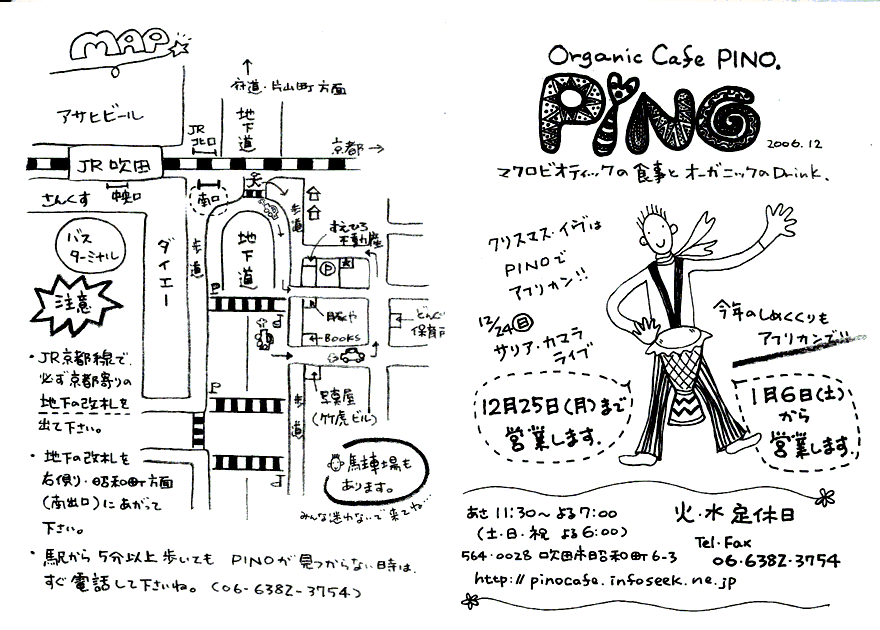 MAP
アサヒビール
↑
府道・片山町方面
地下道
JR
北口
京都→
JR吹田
中央口
南口
さんくす
バス
ターミナル
ダイエー
歩道
地下道
歩道
すえひろ
不動産
P
豚や
BOOKS
どんぐり
写真屋
(竹虎ビル)
歩道
注意
・JR京都線で、
必ず京都寄りの
地下の改札を
出て下さい。
・地下の改札を
右側り・昭和町方面
(南出口)にあがって
下さい。
・駅から5分以上歩いても PINOが見つからない時は、
すぐ電話して下さいね。(06-6382-3754)
駐車場も
あります。
みんな迷わないで来てね…
Organic Cafe PINO.
PiNO
2006.12
マクロビオティックの食事とオーガニックのDrink.
クリスマス・イヴは
PINOで
アフリカン!!
12/24(日)
サリア・カマラ
ライブ
今年のしめくくりも
アフリカンズ!!
12月25日(月)まで
営業します.
1月6日(土)
から
営業します.
あさ11:30〜よる7:00
(土・日・祝 よる6:00)
火・水 定休日
564-0028 吹田市昭和町6-3
Tel・Fax
06・6382・3754
http://pinocafe.infoseek.ne.jp